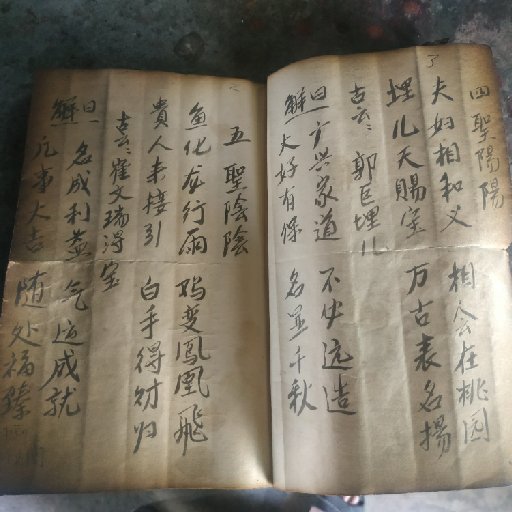 四聖陽陽
夫妇相和义 相会在桃园
埋儿天賜宝 万古表名揚
古云：郭巨埋儿
解曰 广兴家道 不少远造
大好有保 名显千秋
五聖陰陰
鱼化龙行雨 鸡变鳳凰飛
貴人来接引 白手得财归
古云：崔文瑞得宝
解曰 名成利益 气运成就
凡事大吉 随处福臻